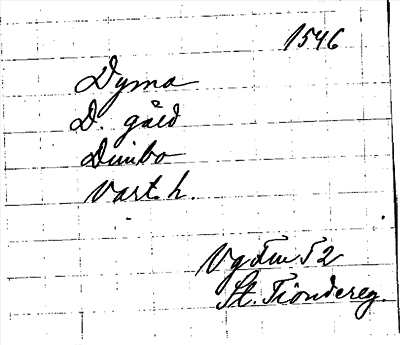 1546
Dyma
D. gård
Dimbo
Vart h.
Vg Tiu 52
St. Tiondereg.